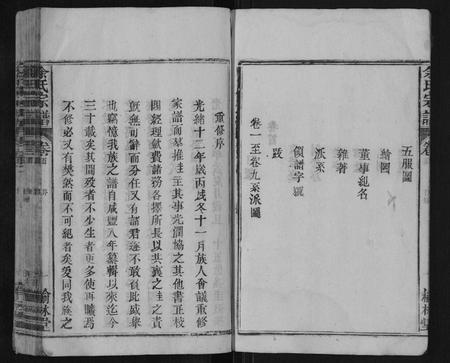 五服圖
繪圖
董事總名
雜著
派系
領譜字號
跋
卷一至卷九系派圖
余氏宗譜
卷首
榆林堂
重修序
光緒十二年歲丙戌冬十一月族人會議重修
家譜而羣推桂主其事光灝協之其他書正校
閱經理歛費諸務各擇所長以共襄之桂之責
既無可辭而分任又有諸君遂不敢者此盛舉
也竊憶我族之譜自咸豐八年纂輯以來迄今
三十載矣其間歿者不少生者更多使再曠焉
不修必又有樊然而不可紀者矣爰同我族之
余氏宗譜